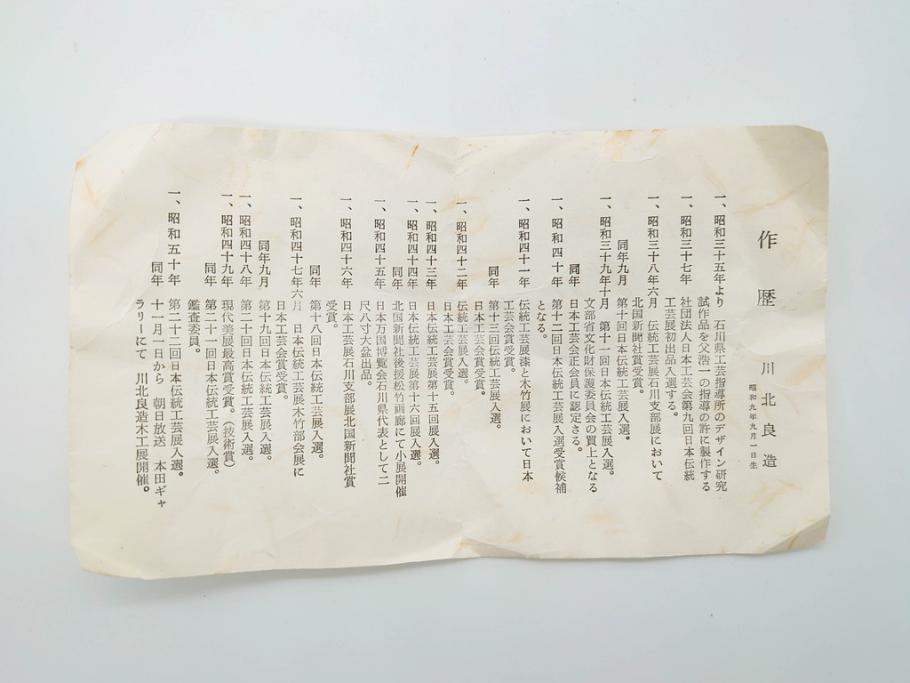 作歴　川北良造
昭和九年九月一日生
一、昭和三十五年より　石川県工芸指導所のデザイン研究
試作品を父浩一の指導の許に製作する
一、昭和三十七年　社団法人日本工芸会第九回日本伝統
工芸展初出品入選する。
一、昭和三十八年六月　伝統工芸展石川支部展において
北国新聞社賞受賞。
同年九月　第十回日本伝統工芸展入選。
一、昭和三十九年十月　第十一回日本伝統工芸展入選。
文部省文化財保護委員会の買上となる
同年　日本工芸会正会員に認定さる。
一、昭和四十年　第十二回日本伝統工芸展入選受賞候補
となる。
一、昭和四十一年　伝統工芸展漆と木竹展において日本
工芸会賞受賞。
同年　第十三回伝統工芸展入選。
日本工芸会賞受賞。
一、昭和四十二年　伝統工芸展入選。
日本工芸会賞受賞。
一、昭和四十三年　日本伝統工芸展第十五回展入選。
一、昭和四十四年　日本伝統工芸展第十六回展入選。
同年　北国新聞社後援松竹画廊にて小展開催
一、昭和四十五年　日本万国博覧会石川県代表として二
尺八寸大盆出品。
一、昭和四十六年　日本工芸展石川支部展北国新聞社賞
受賞。
同年　第十八回日本伝統工芸展入選。
一、昭和四十七年六月　日本伝統工芸展木竹部会展に
日本工芸会賞受賞。
同年九月　第十九回日本伝統工芸展入選。
一、昭和四十八年　第二十回日本伝統工芸展入選。
一、昭和四十九年　現代美展最高賞受賞。（技術賞）
同年　第二十一回日本伝統工芸展入選。
鑑査委員。
一、昭和五十年　第二十二回日本伝統工芸展入選。
同年　十一月一日から　朝日放送　本田ギャ
ラリーにて　川北良造木工展開催。